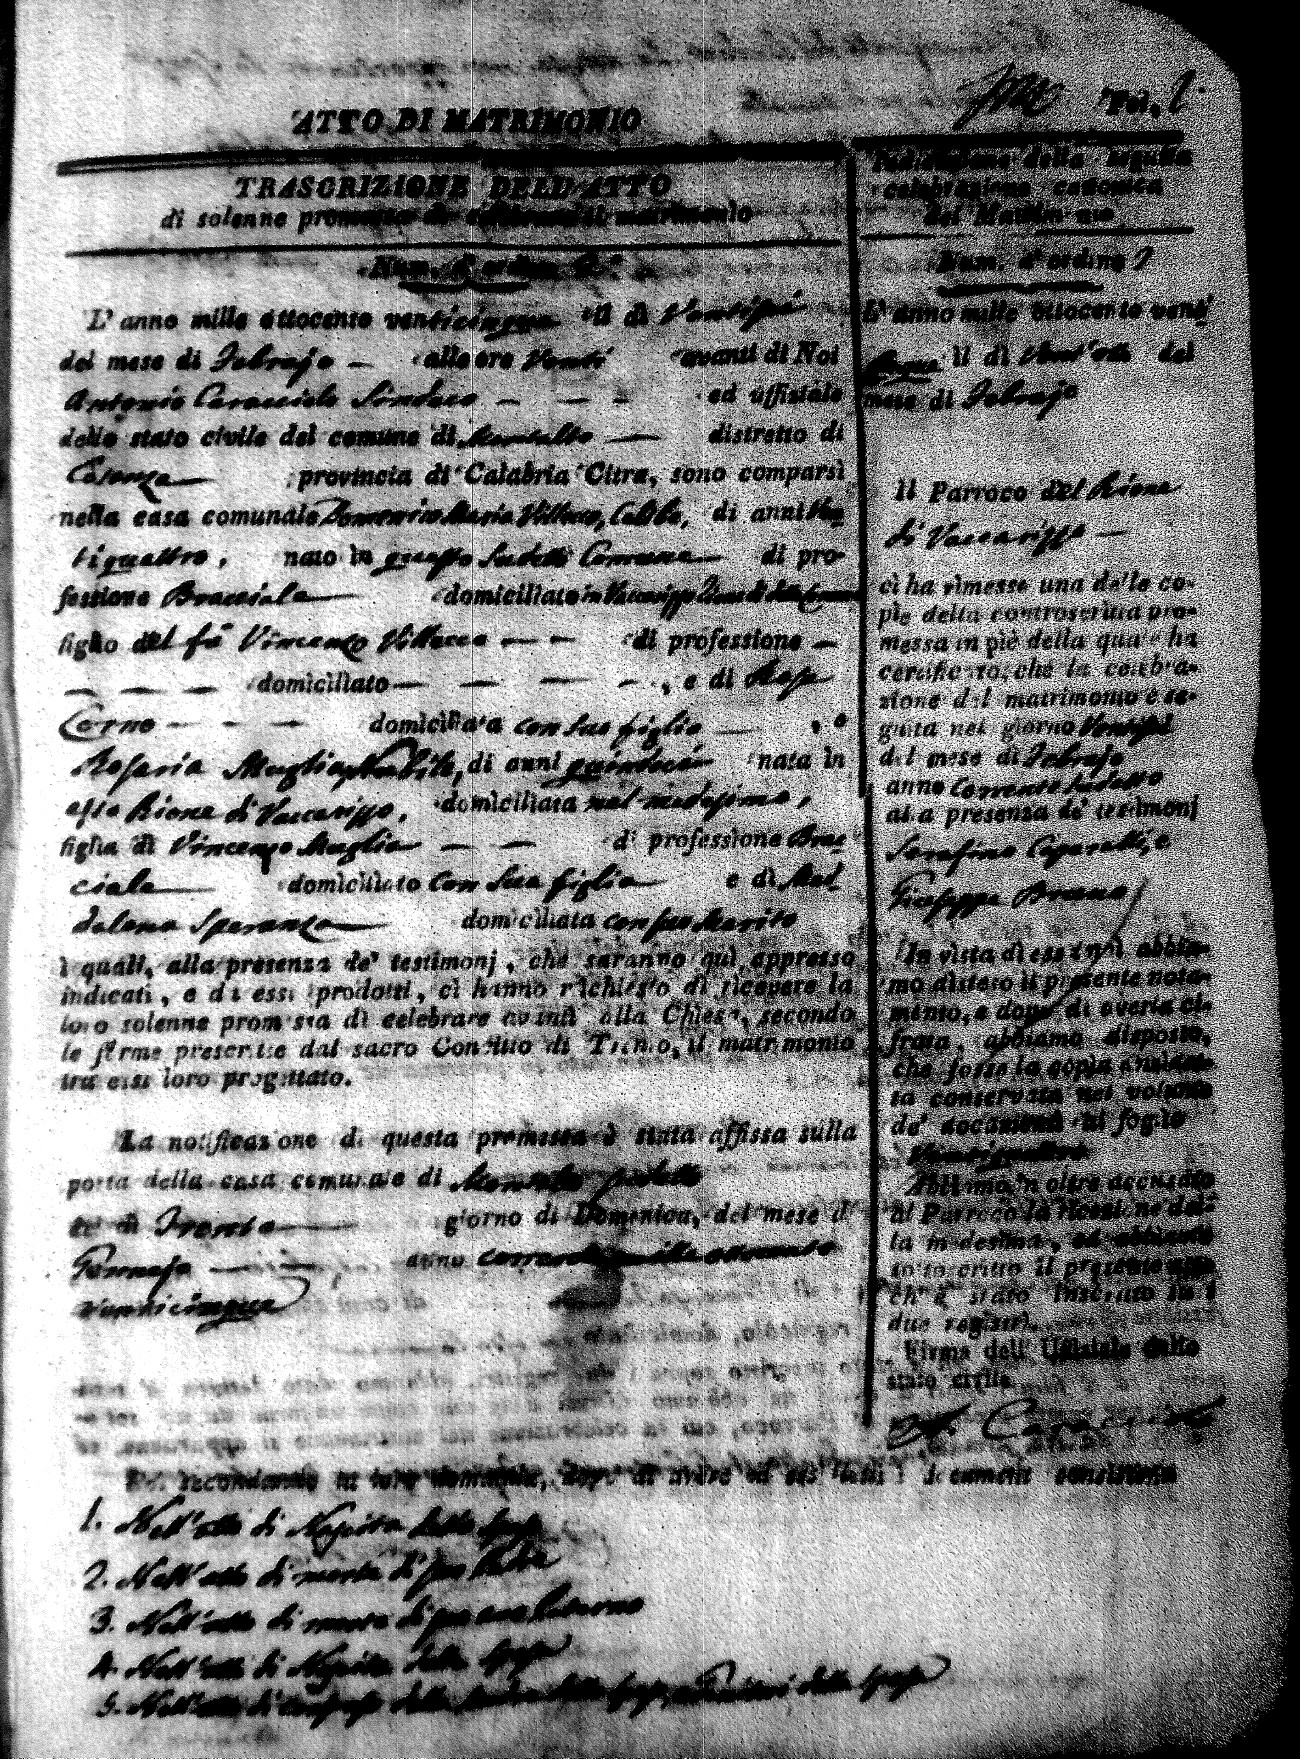 Fol. 2.
ATTO DI MATRIMONIO
TRASCRIZIONE DELL'ATTO
di solenne promessa di celebrare il matrimonio
Num. d'ordine 2.
L'anno mille ottocento venticinque il dì Ventisei
del mese di Febrajo — alle ore Venti avanti di Noi
Antonio Caracciolo Sindaco — — — ed uffiziale
dello stato civile del comune di Montalto — distretto di
Cosenza — provincia di Calabria Citra, sono comparsi
nella casa comunale Domenico Maria Villecco, Celibe, di anni Ven-
tiquattro, nato in questo sudetto Comune — di pro-
fessione Bracciale — domiciliato in Vaccarizzo Rione di detto Comune
figlio del fù Vincenzo Villecco — — di professione —
— — — domiciliato — — — — , e di Rosa
Corno — — — domiciliata con suo figlio — , e
Rosaria Muglia Nubile, di anni quindeci nata in
esso Rione di Vaccarizzo, domiciliata nel medesimo,
figlia di Vincenzo Muglia — — di professione Brac-
ciale — domiciliato con sua figlia — e di Mad-
dalena Speranza — domiciliata con suo Marito
i quali, alla presenza de' testimonj, che saranno quì appresso
indicati, e da essi prodotti, ci hanno richiesto di ricevere la
loro solenne promessa di celebrare avanti alla Chiesa, secondo
le forme prescritte dal sacro Concilio di Trento, il matrimonio
tra essi loro progettato.
La notificazione di questa promessa è stata affissa sulla
porta della casa comunale di Montalto
dì Trenta — giorno di Domenica, del mese di
Gennajo — — anno corrente mille ottocento
venticinque
Noi secondando la loro domanda, dopo di avere ad essi letti i documenti consistenti
1. Nell'atto di Nascita dello sposo
2. Nell'atto di morte di suo Padre
3. Nell'atto di morte di suo avo Paterno
4. Nell'atto di Nascita della sposa
5. Nell'atto di della sposa
Indicazione della seguita
celebrazione canonica
del Matrimonio
Num. d'ordine 2
L'anno mille ottocento venti
cinque il dì Vent'otto del
mese di Febrajo
Il Parroco del Rione
di Vaccarizzo —
ci ha rimesse una delle co-
pie della controscritta pro-
messa in piè della quale ha
certificato, che la celebra-
zione del matrimonio è se-
guita nel giorno Ventisei
del mese di Febrajo
anno corrente sudetto
alla presenza de' testimonj
Serafino Caparelli, e
Giuseppe Bruno
In vista di essa noi abbia-
mo disteso il presente nota-
mento, e dopo di averla ci-
frata, abbiamo disposto,
che fosse la copia anzidet-
ta conservata nel volume
de' documenti al foglio
Ventiquattro
Abbiamo in oltre accusato
al Parroco la ricezione del-
la medesima, ed abbiamo
sottoscritto il presente atto
ch'è stato inscritto su i
due registri.
Firma dell'Uffiziale dello
stato civile
A. Caracciolo